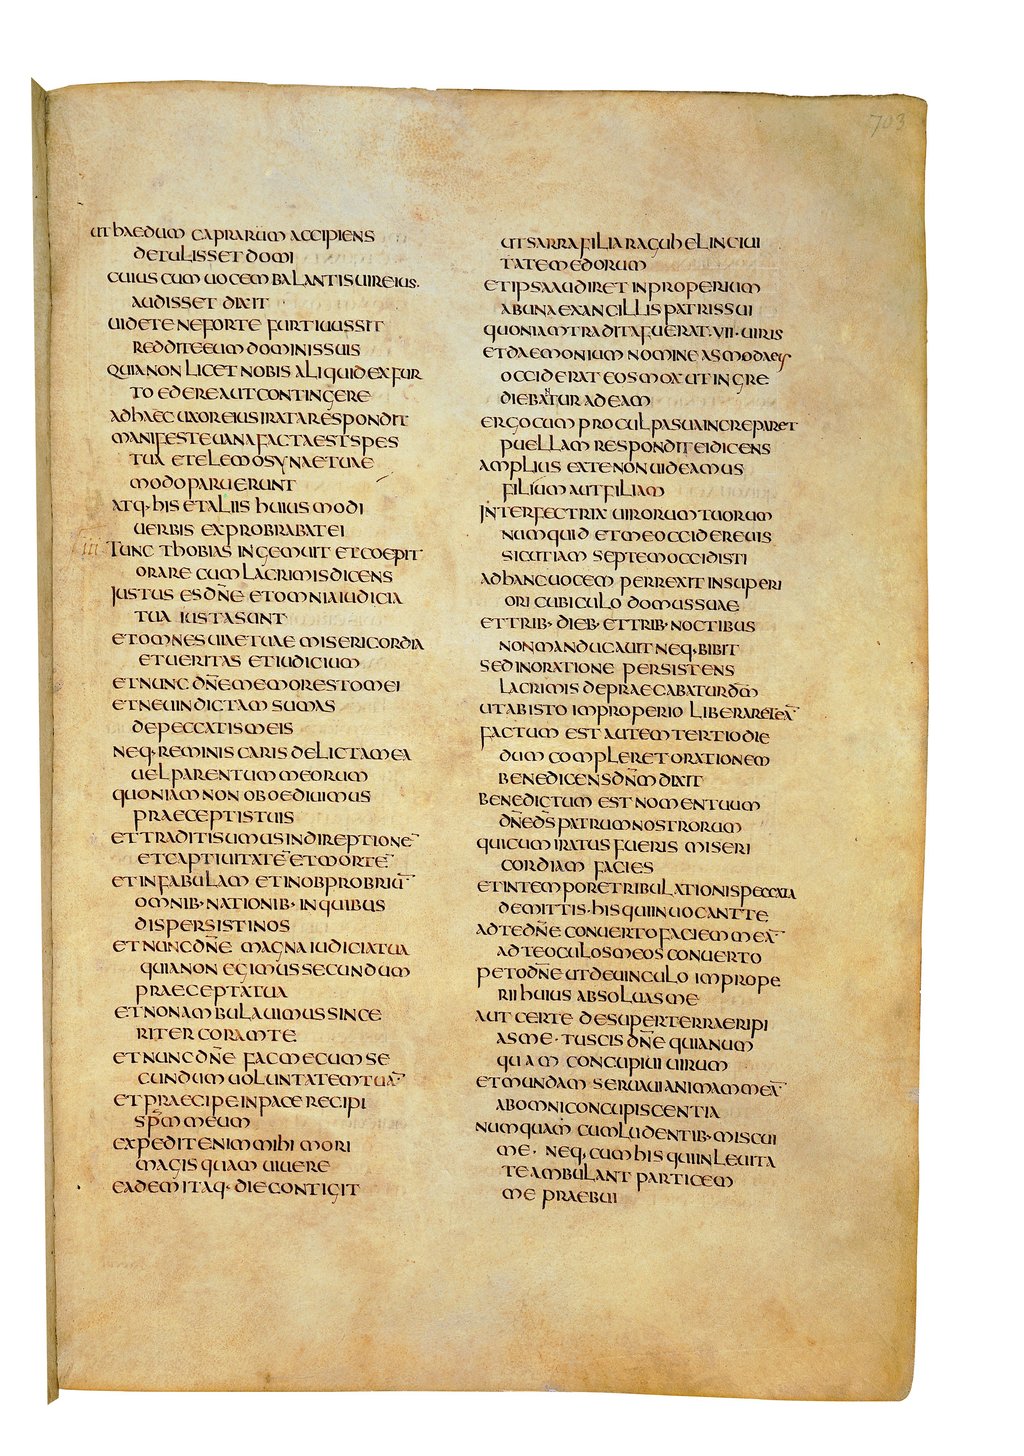 703
UT haEDUM CAPRARUM ACCIPIENS
DETULISSET DOMI
CUIUS CUM UOCEM BALANTIS UIR EIUS·
AUDISSET DIXIT
UIDETE NE FORTE FURTIUUS SIT
REDDITE EUM DOMINIS SUIS
QUIA NON LICET NOBIS ALIQUID EX FUR
TO EDERE AUT CONTINGERE
AD HAEC UXOR EIUS IRATA RESPONDIT
MANIFESTE UANA FACTA EST SPES
TUA ET ELEMOSYNAE TUAE
MODO PARUERUNT
ATQ· HIS ET ALIIS HUIUS MODI
UERBIS EXPROBRABAT EI
III TUNC THOBIAS INGEMUIT ET COEPIT
ORARE CUM LACRIMIS DICENS
IUSTUS ES DÑE ET OMNIA IUDICIA
TUA IUSTA SUNT
ET OMNES UIAE TUAE MISERICORDIA
ET UERITAS ET IUDICIUM
ET NUNC DÑE MEMOR ESTO MEI
ET NE UINDICTAM SUMAS
DE PECCATIS MEIS
NEQ· REMINISCARIS DELICTA MEA
UEL PARENTUM MEORUM
QUONIAM NON OBOEDIUIMUS
PRAECEPTIS TUIS
ET TRADITI SUMUS IN DIREPTIONE¯
ET CAPTIUITATE¯ ET MORTE¯
ET IN FABULAM ET IN OBPROBRIU¯
OMNIB· NATIONIB· IN QUIBUS
DISPERSISTI NOS
ET NUNC DÑE MAGNA IUDICIA TUA
QUIA NON EGIMUS SECUNDUM
PRAECEPTA TUA
ET NON AMBULAUIMUS SINCE
RITER CORAM TE
ET NUNC DÑE FAC MECUM SE
CUNDUM UOLUNTATEM TUA¯
ET PRAECIPE IN PACE RECIPI
SPM̄ MEUM
EXPEDIT ENIM MIHI MORI
MAGIS QUAM UIUERE
EADEM ITAQ· DIE CONTIGIT
UT SARRA FILIA RAGUHELIN CIUI
TATE MEDORUM
ET IPSA AUDIRET INPROPERIUM
AB UNA EX ANCILLIS PATRIS SUI
QUONIAM TRADITA FUERAT· VII· UIRIS
ET DAEMONIUM NOMINE ASMODAEUS
OCCIDERAT EOS MOX UT INGRE
DIEBATUR AD EAM
ERGO CUM PRO CULPA SUA INCREPARET
PUELLAM RESPONDIT EI DICENS
AMPLIUS EX TE NON UIDEAMUS
FILIUM AUT FILIAM
INTERFECTRIX UIRORUM TUORUM
NUMQUID ET ME OCCIDERE UIS
SICUT IAM SEPTEM OCCIDISTI
AD HANC UOCEM PERREXIT IN SUPERI
ORI CUBICULO DOMUS SUAE
ET TRIB· DIEB· ET TRIB· NOCTIBUS
NON MANDUCAUIT NEQ· BIBIT
SED IN ORATIONE PERSISTENS
LACRIMIS DEPRAECABATUR DM̄
UT AB ISTO IMPROPERIO LIBERARET EA¯
FACTUM EST AUTEM TERTIO DIE
DUM COMPLERET ORATIONEM
BENEDICENS DÑM DIXIT
BENEDICTUM EST NOMEN TUUM
DÑE DS̄ PATRUM NOSTRORUM
QUI CUM IRATUS FUERIS MISERI
CORDIAM FACIES
ET IN TEMPORE TRIBULATIONIS PECCATA
DEMITTIS· HIS QUI INUOCANT TE
AD TE DÑE CONUERTO FACIEM MEA¯
AD TE OCULOS MEOS CONUERTO
PETO DÑE UT DE UINCULO IMPROPE
RII HUIUS ABSOLUAS ME
AUT CERTE DESUPER TERRA ERIPI
AS ME· TU SCIS DÑE QUIA NUM
QUAM CONCUPIUI UIRUM
ET MUNDAM SERUAUI ANIMAM MEA¯
AB OMNI CONCUPISCENTIA
NUMQUAM CUM LUDENTIB· MISCUI
ME· NEQ, CUM HIS QUI IN LEUITA
TE AMBULANT PARTICEM
ME PRAEBUI